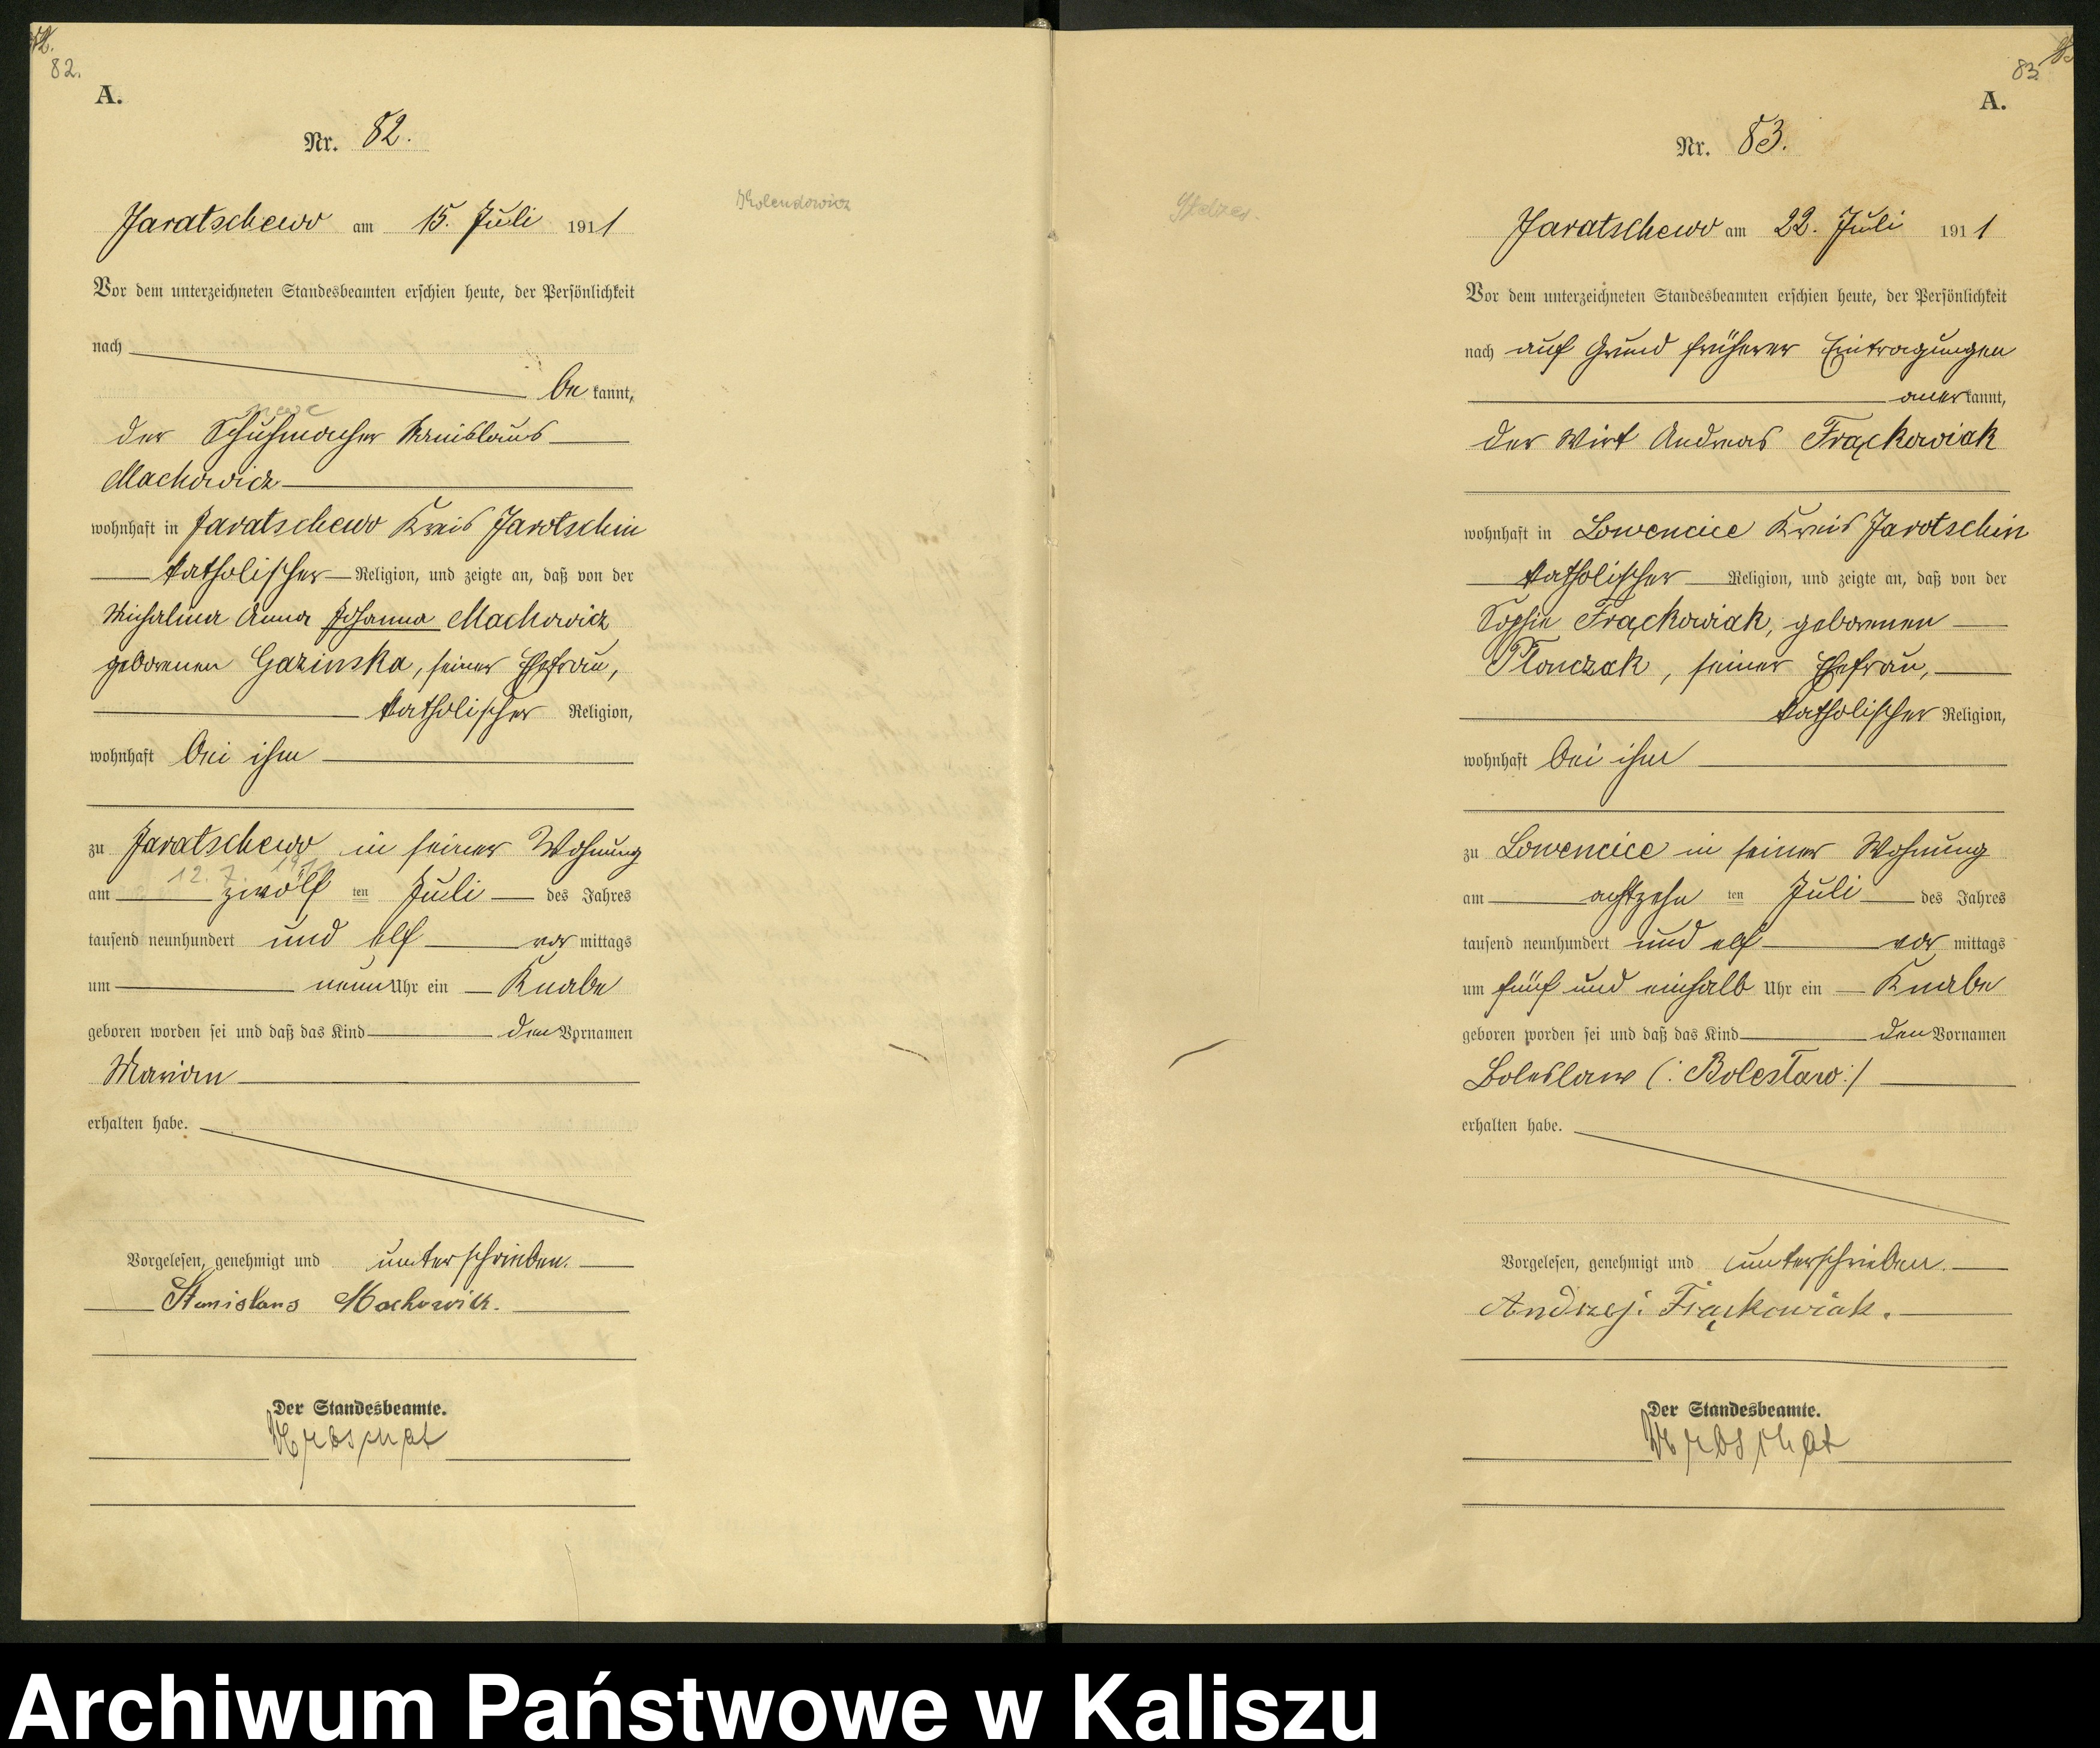 82.
A.
Nr. 82.
Kolendowicz
Jaratschewo am 15. Juli 1911
Vor dem unterzeichneten Standesbeamten erschien heute, der Persönlichkeit
nach
be kannt,
der Schuhmacher Stanislaus
Machowicz
wohnhaft in Jaratschewo Kreis Jarotschin
katholischer Religion, und zeigte an, daß von der
Michalina Anna Johanna Machowicz
geborenen Gazinska, seiner Ehefrau,
katholischer Religion,
wohnhaft bei ihm
zu Jaratschewo in seiner Wohnung
12. 7. 1911
am zwölf ten Juli des Jahres
tausend neunhundert und elf vor mittags
um neun Uhr ein Knabe
geboren worden sei und daß das Kind den Vornamen
Marian
erhalten habe.
Vorgelesen, genehmigt und unterschrieben.
Stanislaus Machowicz.
Der Standesbeamte.
83
A.
Nr. 83.
Jaratschewo am 22. Juli 1911
Vor dem unterzeichneten Standesbeamten erschien heute, der Persönlichkeit
nach auf Grund früherer Eintragungen
anerkannt,
der Wirt Andreas Frąckowiak
wohnhaft in Lowencice Kreis Jarotschin
katholischer Religion, und zeigte an, daß von der
Sophie Frąckowiak, geborenen
Płonczak, seiner Ehefrau,
katholischer Religion,
wohnhaft bei ihm
zu Lowencice in seiner Wohnung
am achtzehn ten Juli des Jahres
tausend neunhundert und elf vor mittags
um fünf und einhalb Uhr ein Knabe
geboren worden sei und daß das Kind den Vornamen
Boleslaw (: Bolesław :)
erhalten habe.
Vorgelesen, genehmigt und unterschrieben.
Andrzej Frąckowiak.
Der Standesbeamte.
Archiwum Państwowe w Kaliszu